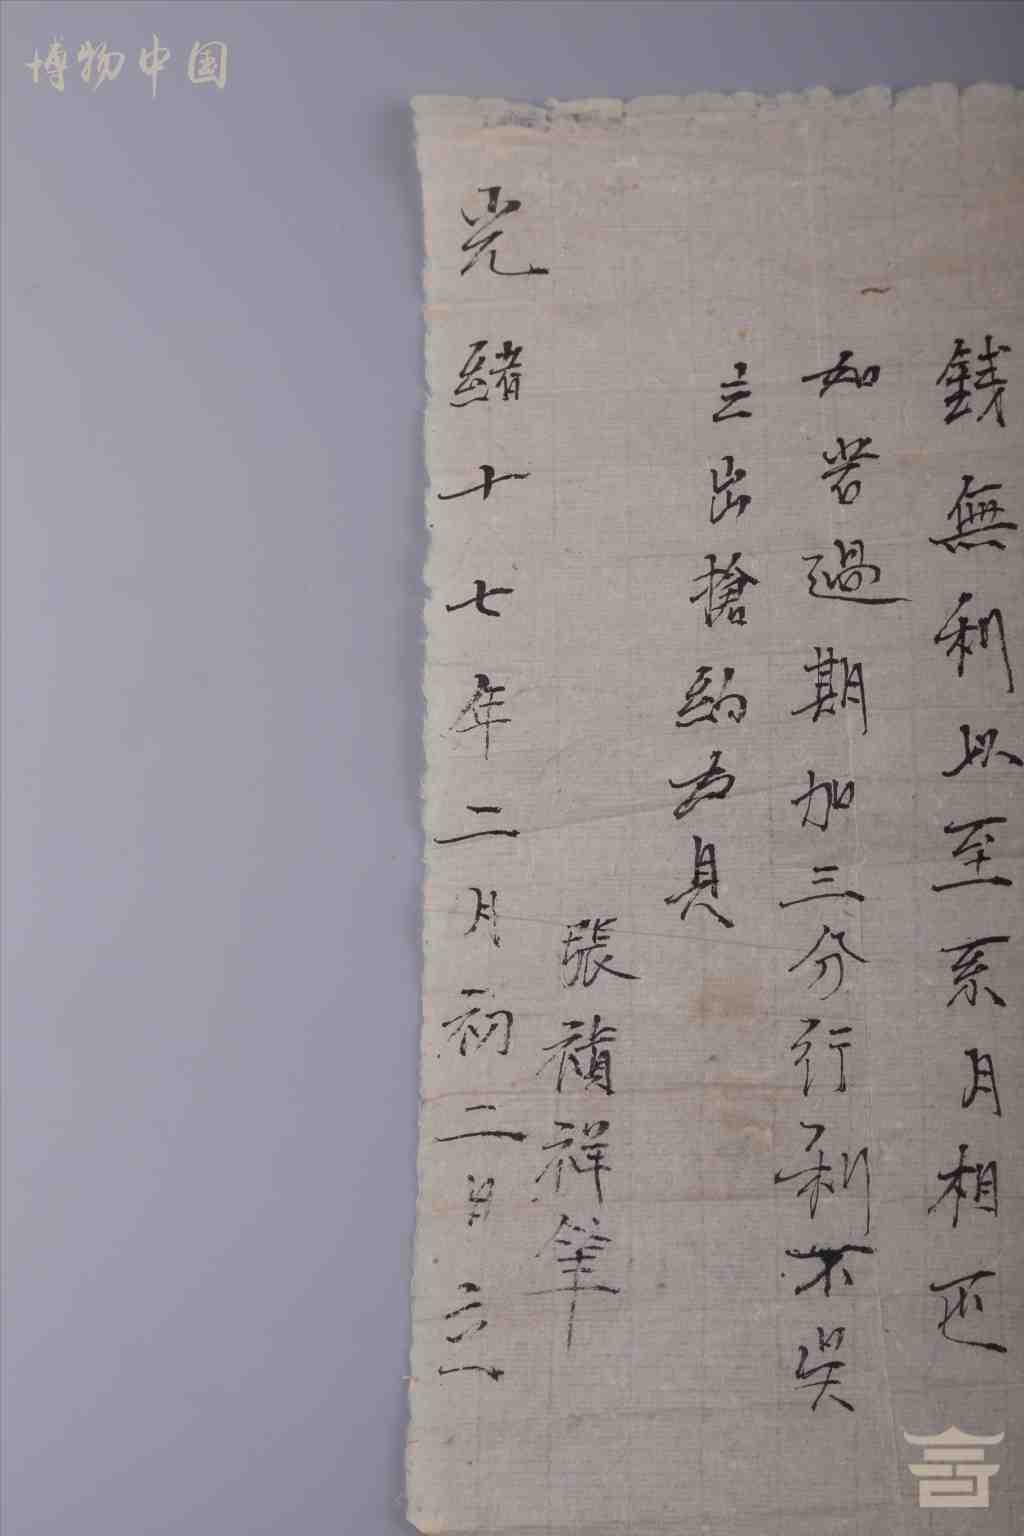 博物中国
錢無利以至系月相还
如若過期加三分行利不吴
立出搶約为具
張積祥筆
光緒十七年二月初二日立